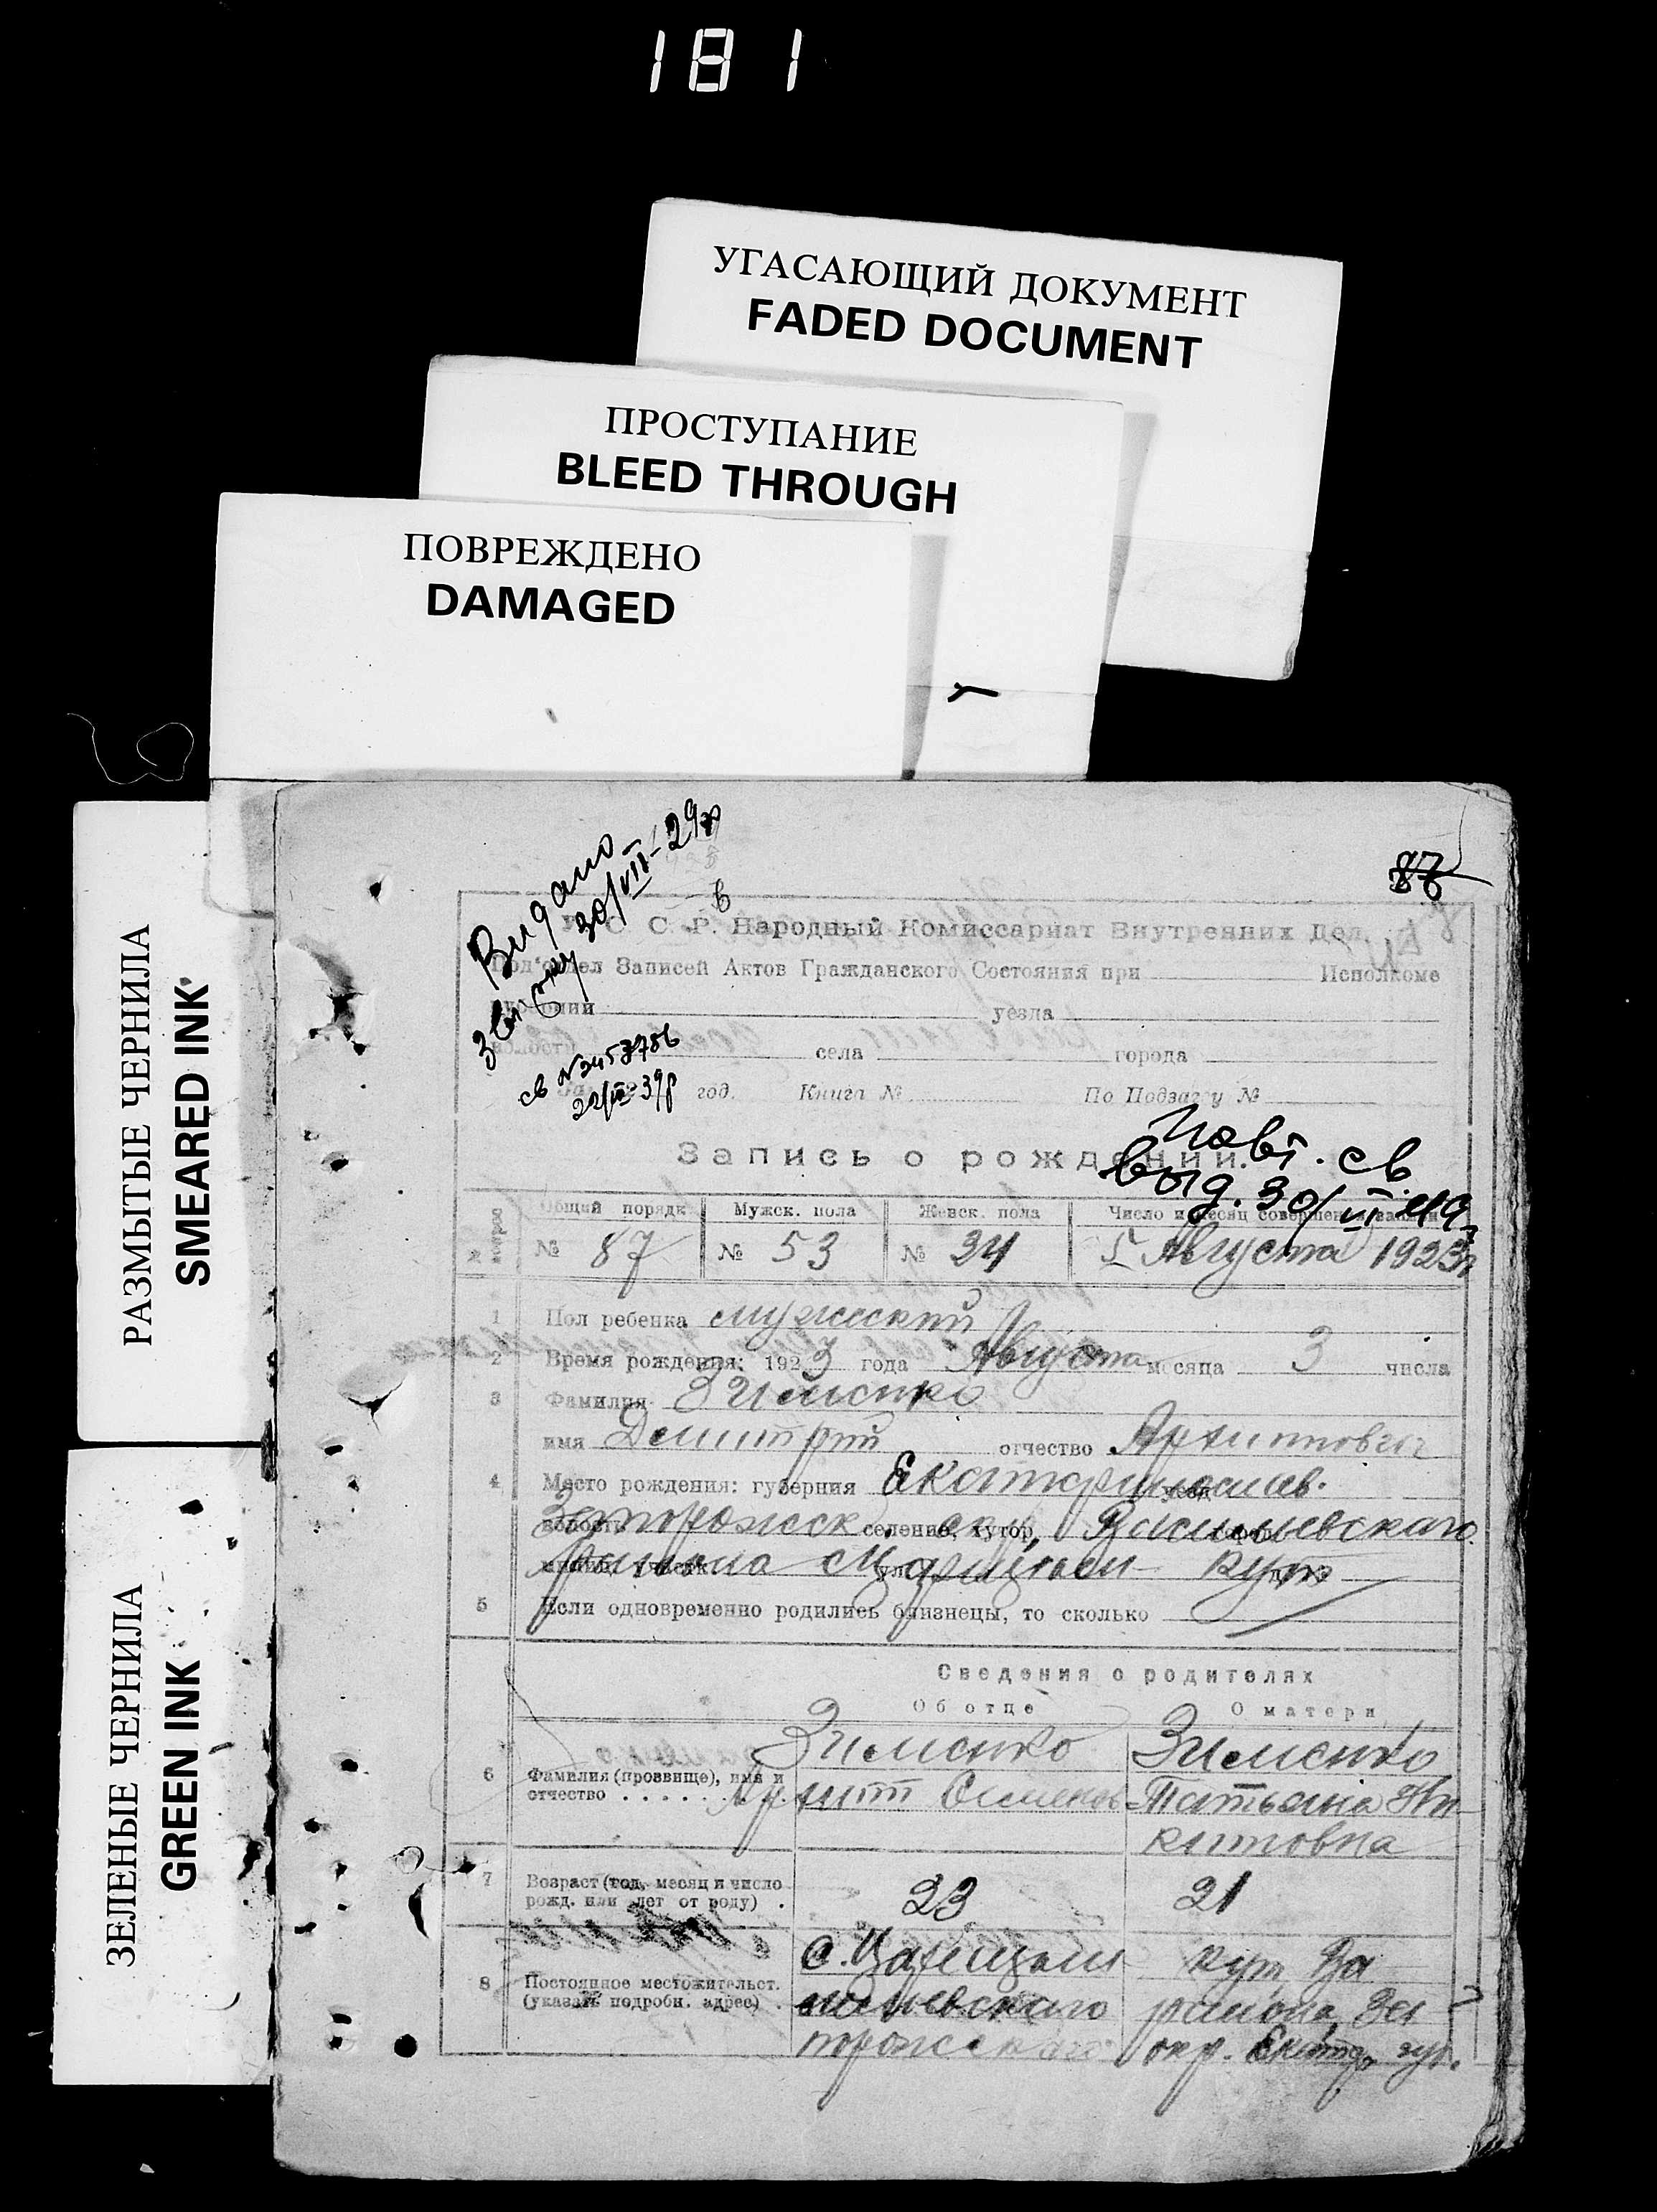 181
УГАСАЮЩИЙ ДОКУМЕНТ
FADED DOCUMENT
ПРОСТУПАНИЕ
BLEED THROUGH
ПОВРЕЖДЕНО
DAMAGED
РАЗМЫТЫЕ ЧЕРНИЛА
SMEARED INK
ЗЕЛЕНЫЕ ЧЕРНИЛА
GREEN INK
Видано
30/VII-29р
св №2457786
С. С. Р. Народный Комиссариат Внутренних Дел
Под'отдел Записей Актов Гражданского Состояния при Исполкоме
уезла
села города
год. Книга № По Подзагсу №
Повт. св.
Запись о рождении.
выд. 30/VI 49
Общий порядк Мужск. пола Женск. пола Число и месяц совершения записи
№ 87 № 53 № 34 5 Августа 1923г
1 Пол ребенка мужеский
2 Время рождения: 1923 года Августа месяца 3 числа
3 Фамилия Зименко
имя Демитрий отчество Архипович
4 Место рождения: губерния Екатеринослав.
Запорожск селение, хутор, Васильевскаго
района Царицын кут
5 Если одновременно родились близнецы, то сколько
Сведения о родителях
Об отце О матери
Зименко Зименко
6 Фамилия (прозвище), имя и отчество Архип Семенов Татьяна Ни
китовна
7 Возраст (год, месяц и число рожд. или лет от роду) 23 21
8 Постоянное местожительст. (указать подробн. адрес) с. Царицын кут Ва
сильевскаго района За
порожскаго окр. Екатр. губ.